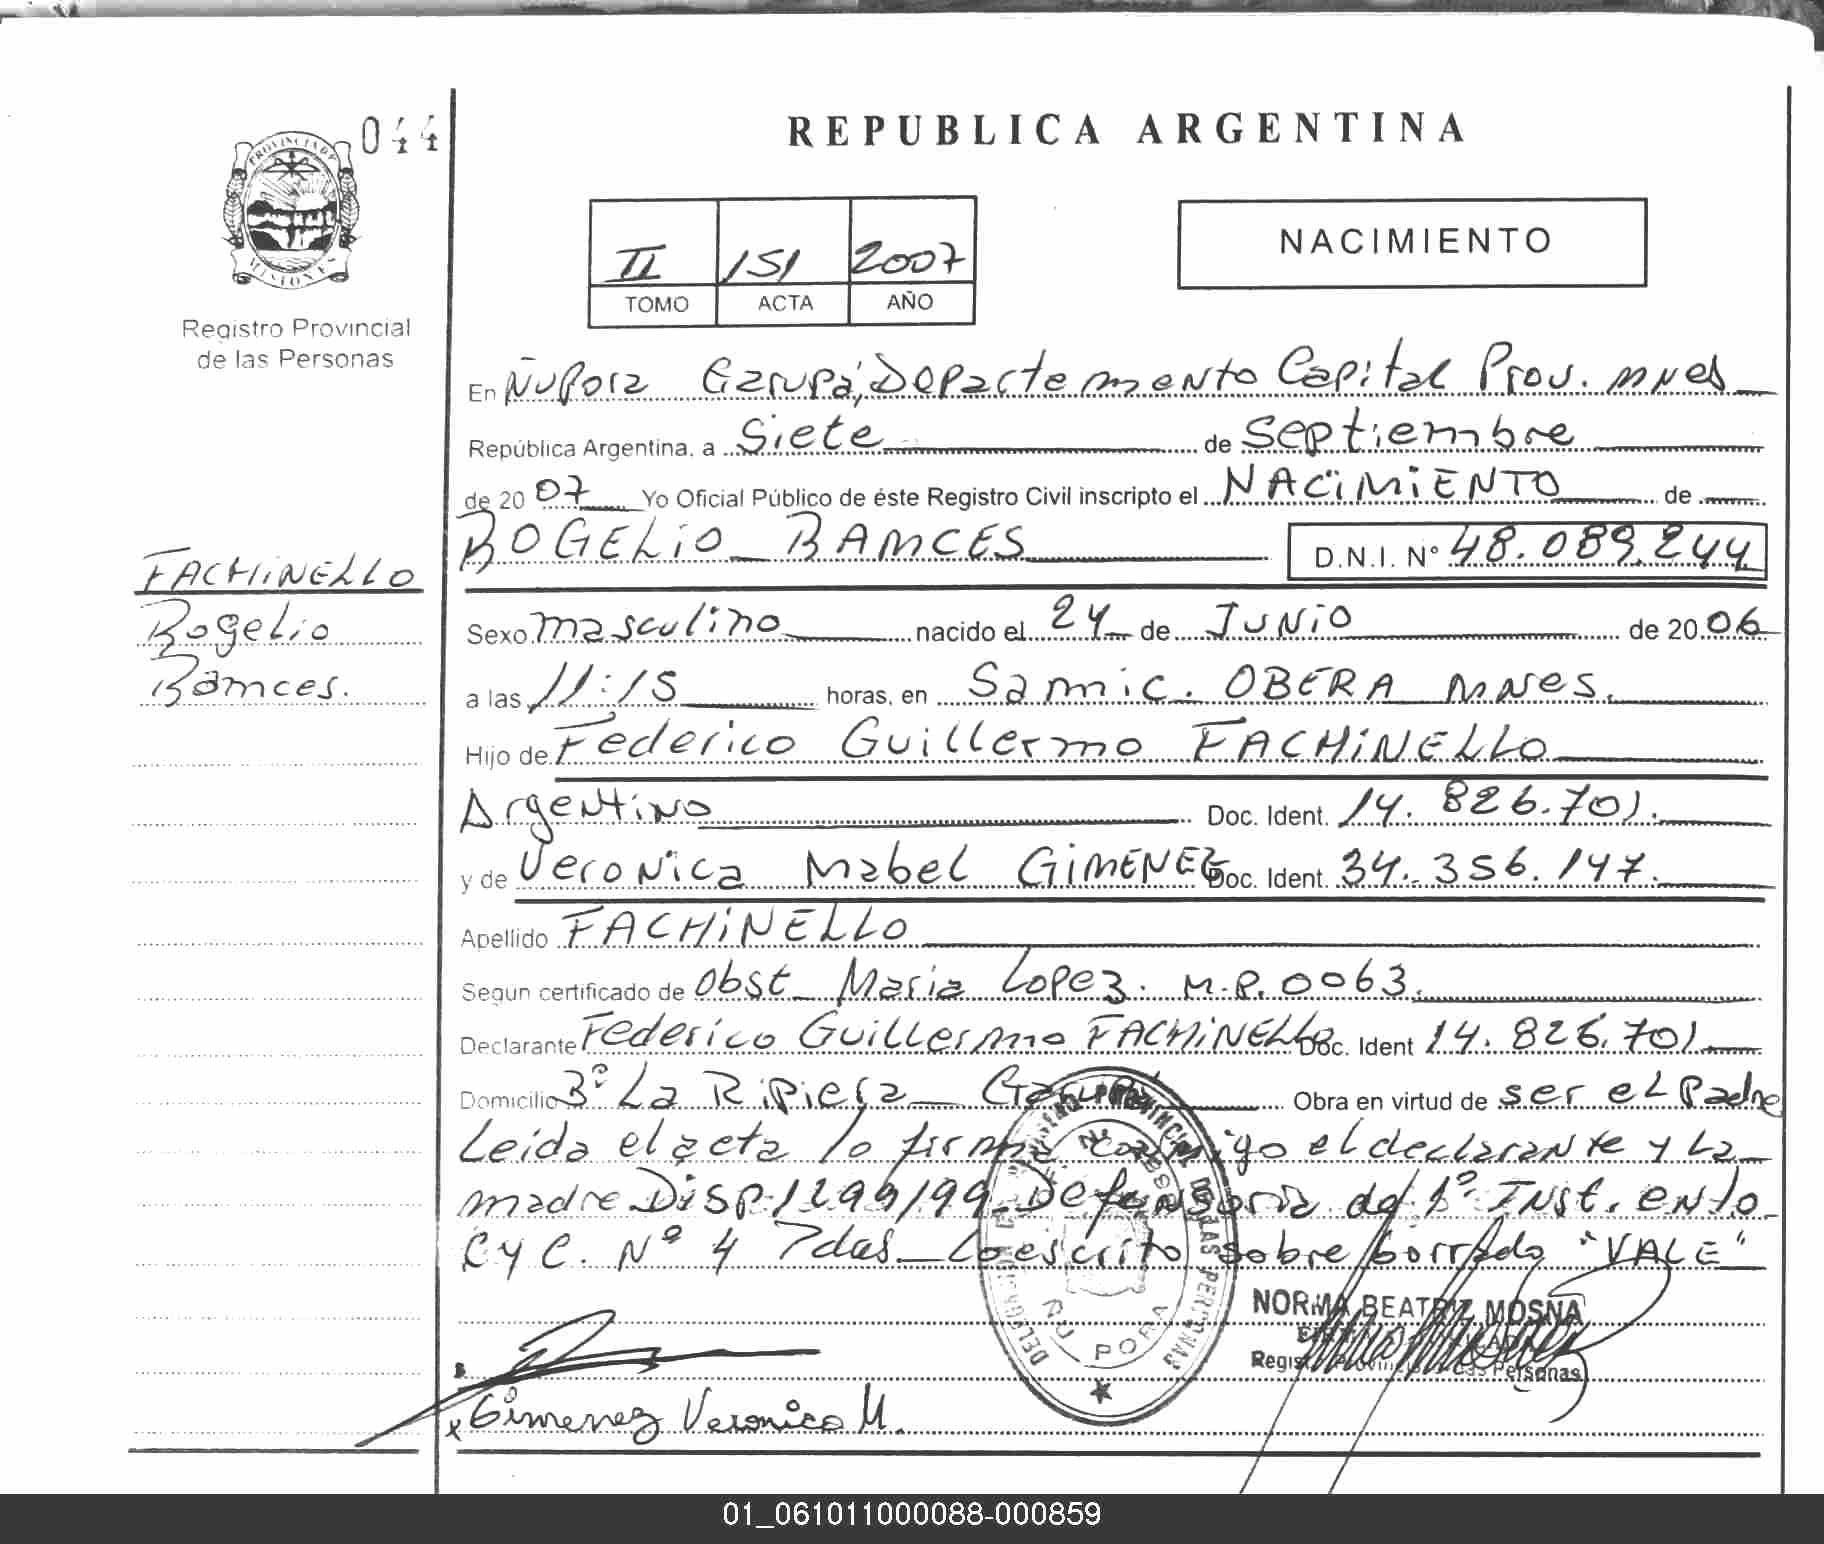 044
PROVINCIA DE
MISIONES
Registro Provincial
de las Personas
REPUBLICA ARGENTINA
II 151 2007
TOMO ACTA AÑO
NACIMIENTO
En Ñupora Garupá, Departamento Capital Prov. mnes
República Argentina, a Siete de Septiembre
de 2007 Yo Oficial Público de éste Registro Civil inscripto el NACIMIENTO de
ROGELIO RAMCES D.N.I. N° 48.089.244
FACHINELLO
Rogelio
Ramces.
Sexo masculino nacido el 24 de JUNIO de 2006
a las 11:15 horas, en Samic. OBERA mnes.
Hijo de Federico Guillermo FACHINELLO
Argentino Doc. Ident. 14.826.701.
y de Veronica Mabel GIMENEZ Doc. Ident. 34.356.147.
Apellido FACHINELLO
Segun certificado de Obst Maria Lopez. M.P. 0063.
Declarante Federico Guillermo FACHINELLO Doc. Ident 14.826.701
Domicilio Bº La Ripiera Garupá Obra en virtud de ser el Padre
Leida el acta lo firma conmigo el declarante y La
madre Disp 1299/99 Defensoria de 1º Inst. en lo
C y C. Nº 4 Pdas. Lo escrito sobre borrado "VALE"
NORMA BEATRIZ MOSNA
Registro Provincial de las Personas
DELEGACION REGISTRO PROVINCIAL DE LAS PERSONAS
ÑU PORA
x Gimenez Veronica M.
01_061011000088-000859